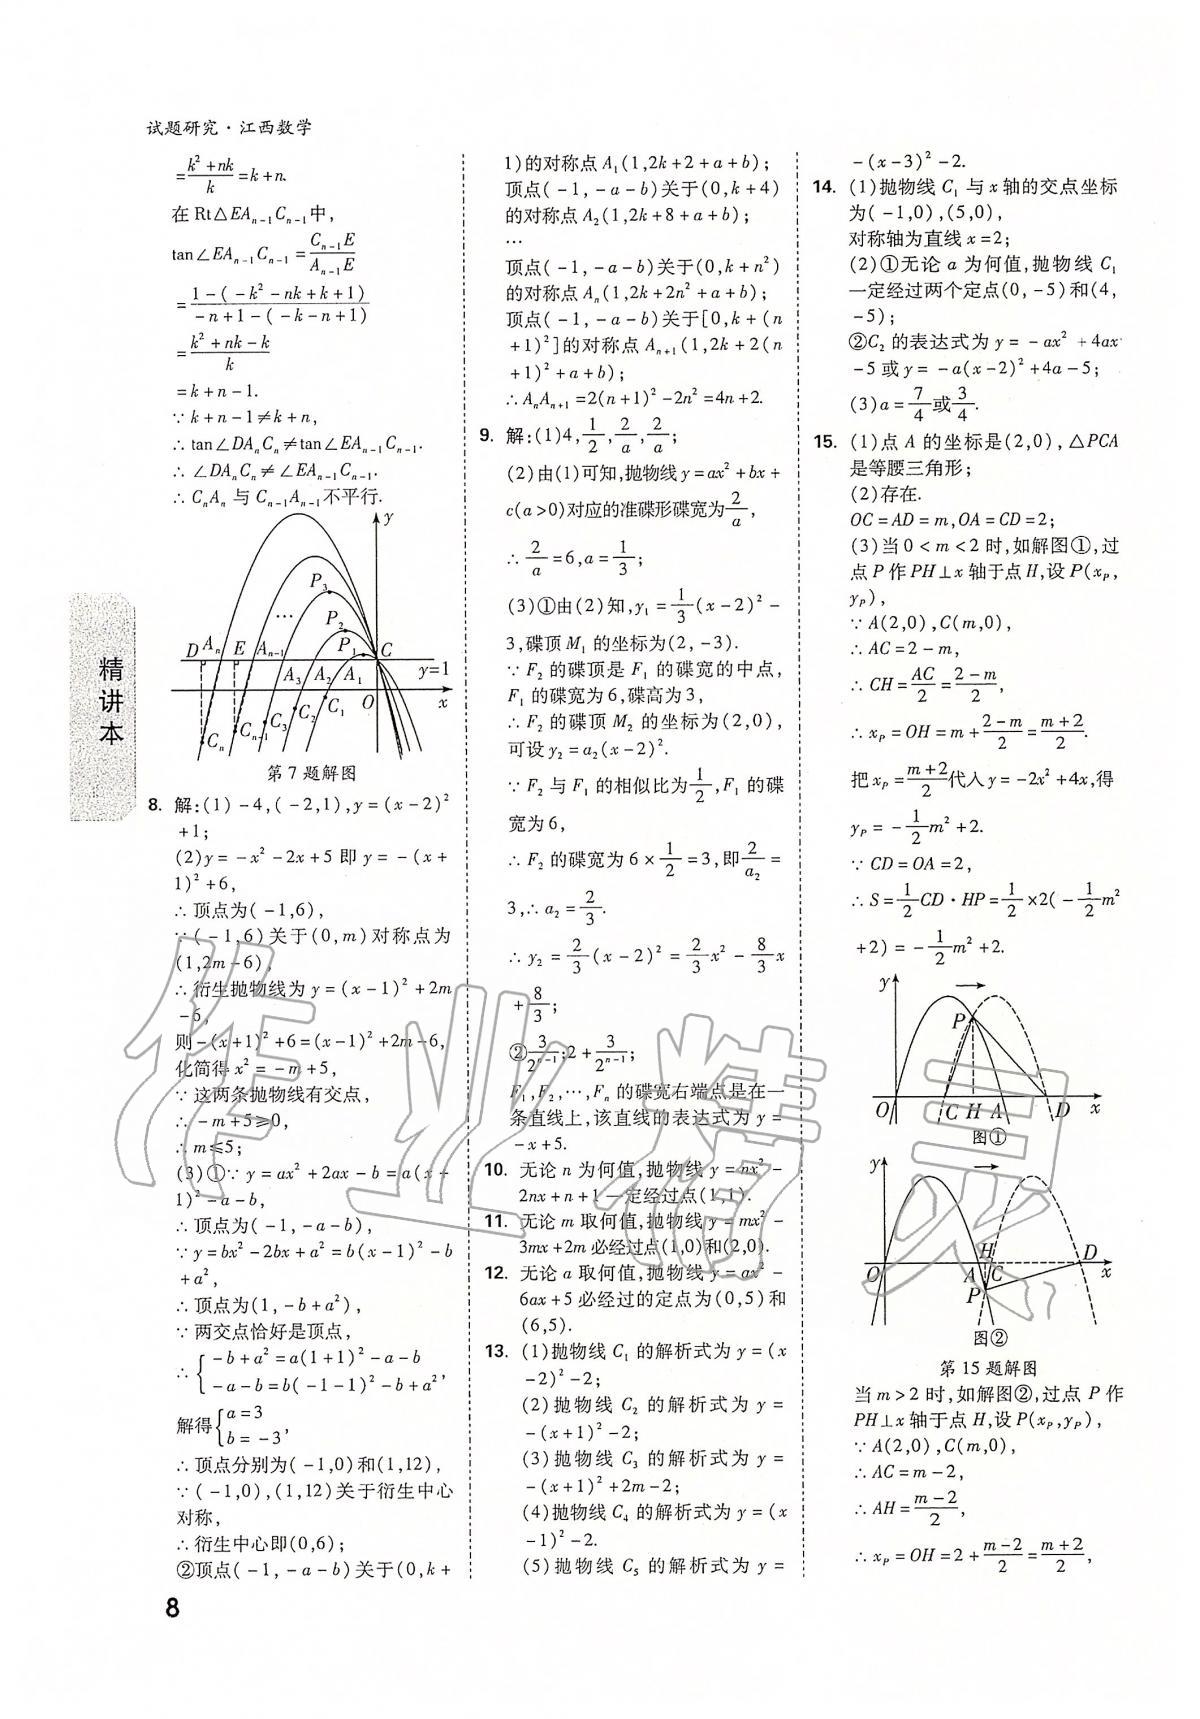 试题研究·江西数学
=\frac{k²+nk}{k}=k+n.
在 Rt△EAₙ₋₁Cₙ₋₁中,
tan∠EAₙ₋₁Cₙ₋₁=\frac{Cₙ₋₁E}{Aₙ₋₁E}
=\frac{1-(-k²-nk+k+1)}{-n+1-(-k-n+1)}
=\frac{k²+nk-k}{k}
=k+n-1.
∵k+n-1≠k+n,
∴tan∠DAₙCₙ≠tan∠EAₙ₋₁Cₙ₋₁.
∴∠DAₙCₙ≠∠EAₙ₋₁Cₙ₋₁.
∴CₙAₙ 与 Cₙ₋₁Aₙ₋₁不平行.
y
P₃
…
P₂
P₁
C
D Aₙ E Aₙ₋₁ A₃ A₂ A₁
y=1
O x
Cₙ Cₙ₋₁ C₃ C₂ C₁
第 7 题解图
8. 解:(1)-4,(-2,1),y=(x-2)²
+1;
(2)y=-x²-2x+5 即 y=-(x+
1)²+6,
∴顶点为(-1,6),
∵(-1,6)关于(0,m)对称点为
(1,2m-6),
∴衍生抛物线为 y=(x-1)²+2m
-6,
则-(x+1)²+6=(x-1)²+2m-6,
化简得 x²=-m+5,
∵这两条抛物线有交点,
∴-m+5≥0,
∴m≤5;
(3)①∵y=ax²+2ax-b=a(x+
1)²-a-b,
∴顶点为(-1,-a-b),
∵y=bx²-2bx+a²=b(x-1)²-b
+a²,
∴顶点为(1,-b+a²),
∵两交点恰好是顶点,
∴{-b+a²=a(1+1)²-a-b
-a-b=b(-1-1)²-b+a²,
解得{a=3
b=-3,
∴顶点分别为(-1,0)和(1,12),
∵(-1,0),(1,12)关于衍生中心
对称,
∴衍生中心即(0,6);
②顶点(-1,-a-b)关于(0,k+
1)的对称点 A₁(1,2k+2+a+b);
顶点(-1,-a-b)关于(0,k+4)
的对称点 A₂(1,2k+8+a+b);
…
顶点(-1,-a-b)关于(0,k+n²)
的对称点 Aₙ(1,2k+2n²+a+b);
顶点(-1,-a-b)关于[0,k+(n
+1)²]的对称点 Aₙ₊₁(1,2k+2(n
+1)²+a+b);
∴AₙAₙ₊₁=2(n+1)²-2n²=4n+2.
9. 解:(1)4,\frac{1}{2},\frac{2}{a},\frac{2}{a};
(2)由(1)可知,抛物线 y=ax²+bx+
c(a>0)对应的准碟形碟宽为\frac{2}{a},
∴\frac{2}{a}=6,a=\frac{1}{3};
(3)①由(2)知,y₁=\frac{1}{3}(x-2)²-
3,碟顶 M₁ 的坐标为(2,-3).
∵F₂ 的碟顶是 F₁ 的碟宽的中点,
F₁ 的碟宽为 6,碟高为 3,
∴F₂ 的碟顶 M₂ 的坐标为(2,0),
可设 y₂=a₂(x-2)².
∵F₂ 与 F₁ 的相似比为\frac{1}{2},F₁ 的碟
宽为 6,
∴F₂ 的碟宽为 6×\frac{1}{2}=3,即\frac{2}{a₂}=
3,∴a₂=\frac{2}{3}.
∴y₂=\frac{2}{3}(x-2)²=\frac{2}{3}x²-\frac{8}{3}x
+\frac{8}{3};
②\frac{3}{2ⁿ⁻¹};2+\frac{3}{2ⁿ⁻¹};
F₁,F₂,…,Fₙ 的碟宽右端点是在一
条直线上,该直线的表达式为 y=
-x+5.
10. 无论 n 为何值,抛物线 y=nx²-
2nx+n+1 一定经过点(1,1).
11. 无论 m 取何值,抛物线 y=mx²-
3mx+2m 必经过点(1,0)和(2,0).
12. 无论 a 取何值,抛物线 y=ax²-
6ax+5 必经过的定点为(0,5)和
(6,5).
13. (1)抛物线 C₁ 的解析式为 y=(x
-2)²-2;
(2)抛物线 C₂ 的解析式为 y=
-(x+1)²-2;
(3)抛物线 C₃ 的解析式为 y=
-(x+1)²+2m-2;
(4)抛物线 C₄ 的解析式为 y=(x
-1)²-2.
(5)抛物线 C₅ 的解析式为 y=
-(x-3)²-2.
14. (1)抛物线 C₁ 与 x 轴的交点坐标
为(-1,0),(5,0),
对称轴为直线 x=2;
(2)①无论 a 为何值,抛物线 C₁
一定经过两个定点(0,-5)和(4,
-5);
②C₂ 的表达式为 y=-ax²+4ax
-5 或 y=-a(x-2)²+4a-5;
(3)a=\frac{7}{4}或\frac{3}{4}.
15. (1)点 A 的坐标是(2,0),△PCA
是等腰三角形;
(2)存在.
OC=AD=m,OA=CD=2;
(3)当 0<m<2 时,如解图①,过
点 P 作 PH⊥x 轴于点 H,设 P(x_P,
y_P),
∵A(2,0),C(m,0),
∴AC=2-m,
∴CH=\frac{AC}{2}=\frac{2-m}{2},
∴x_P=OH=m+\frac{2-m}{2}=\frac{m+2}{2}.
把 x_P=\frac{m+2}{2}代入 y=-2x²+4x,得
y_P=-\frac{1}{2}m²+2.
∵CD=OA=2,
∴S=\frac{1}{2}CD·HP=\frac{1}{2}×2(-\frac{1}{2}m²
+2)=-\frac{1}{2}m²+2.
y
P
O C H A D x
图①
y
H
O A C D x
P
图②
第 15 题解图
当 m>2 时,如解图②,过点 P 作
PH⊥x 轴于点 H,设 P(x_P,y_P),
∵A(2,0),C(m,0),
∴AC=m-2,
∴AH=\frac{m-2}{2},
∴x_P=OH=2+\frac{m-2}{2}=\frac{m+2}{2},
精讲本
8
作业精灵